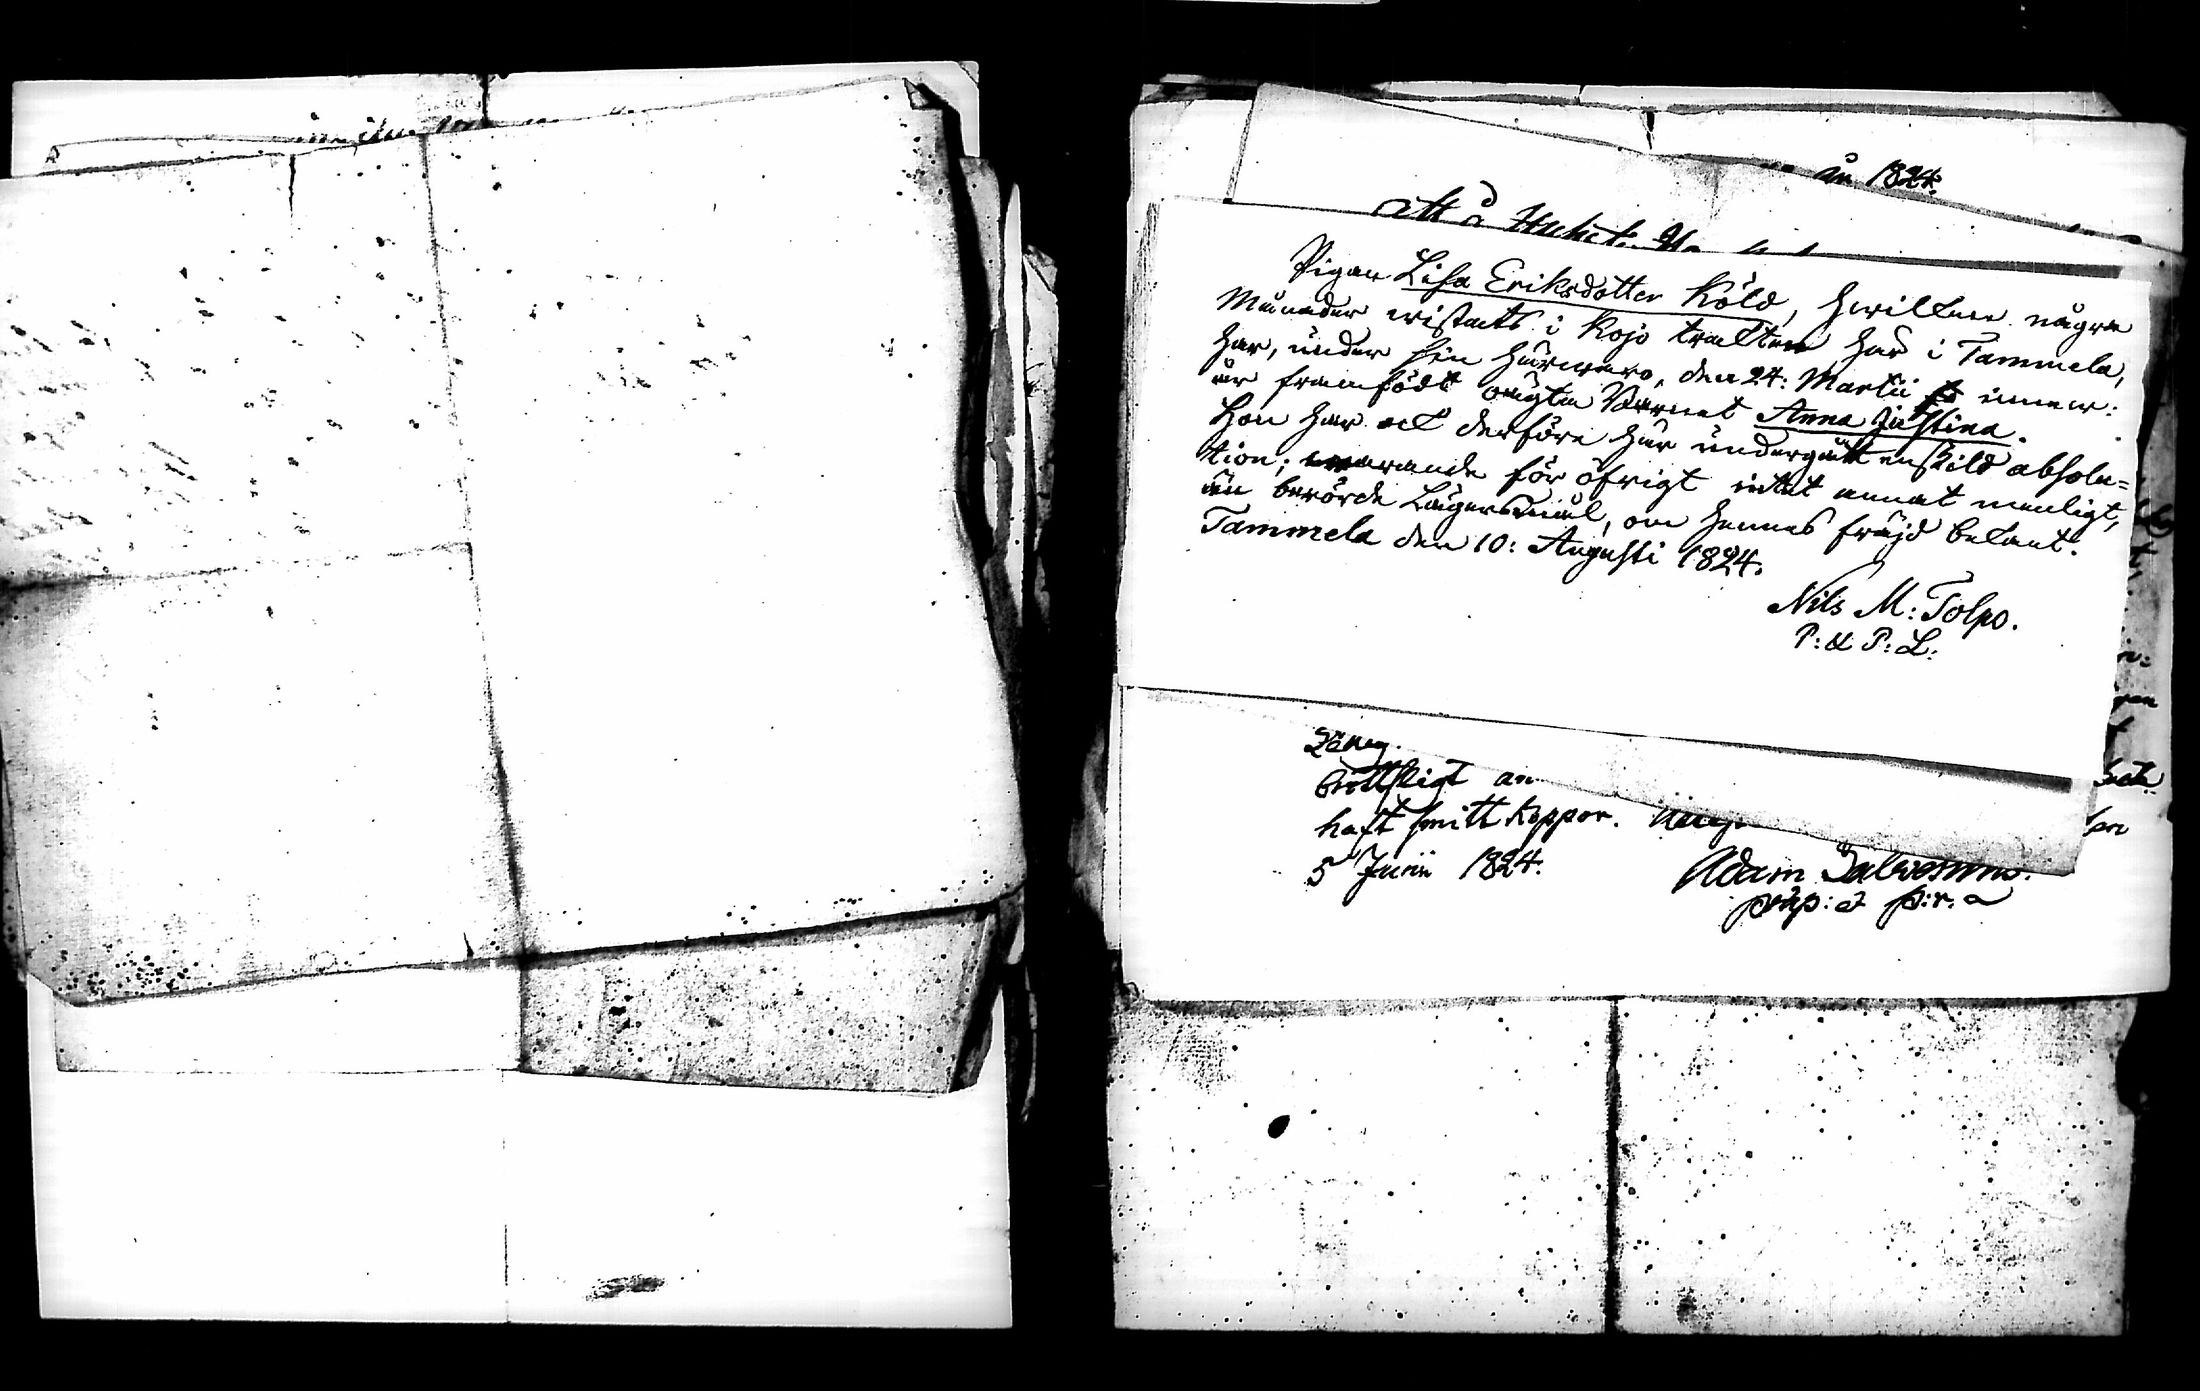 år 1824.
att å
Pigan Lisa Eriksdotter Köld, hwilken några
Månader wistats i Kojo trakten här i Tammela,
har, under sin härwaro, den 24: Martii innew:
år framfödt oägta Barnet Anna Justina.
Hon har ock derföre här undergått enskild absolu=
tion; warande för öfrigt intet annat menligt,
än berörde Lägersmål, om hennes fräjd bekant.
Tammela den 10: Augusti 1824.
Nils M: Tolpo.
P: & P: L:
brottsligt an
haft smittkoppor.
5 Junii 1824.
Adam